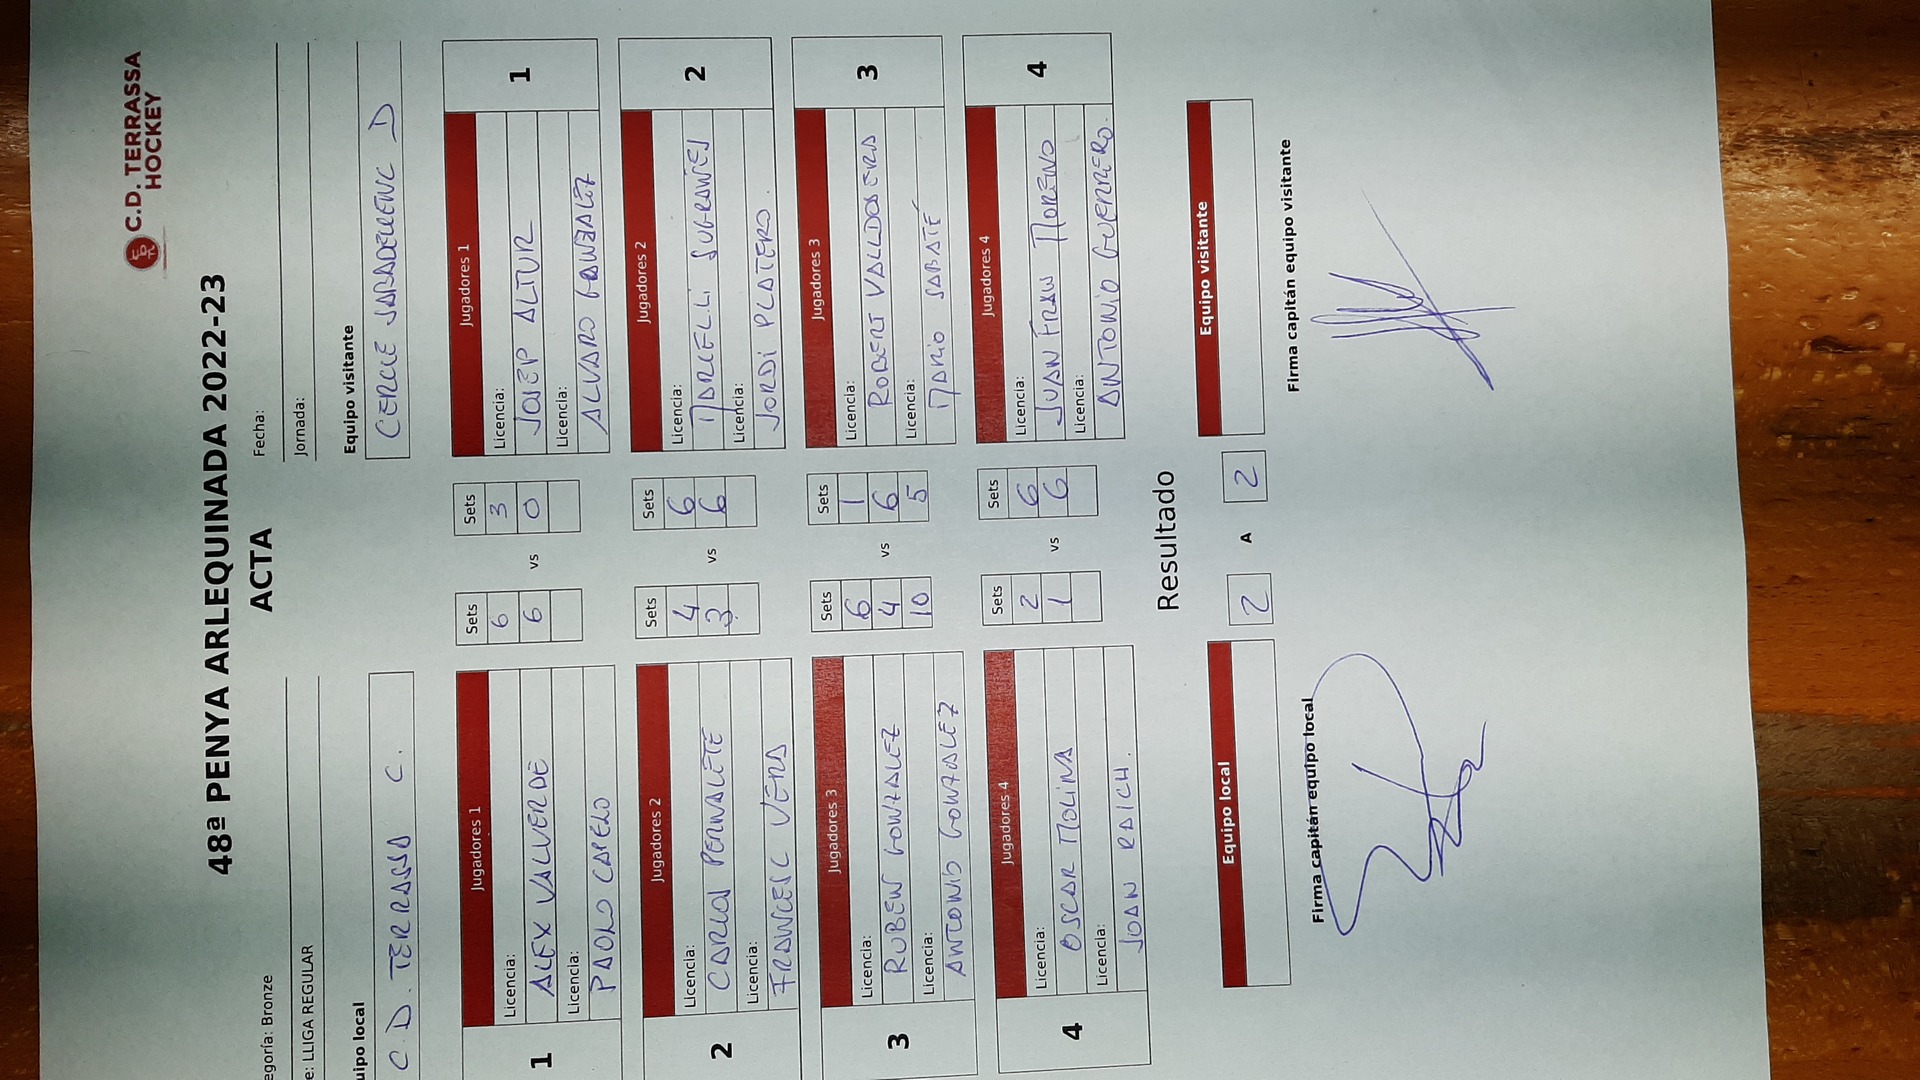 C.D. TERRASSA
HOCKEY
48ª PENYA ARLEQUINADA 2022-23
ACTA
egoría: Bronze
Fecha:
e: LLIGA REGULAR
Jornada:
uipo local
Equipo visitante
C.D. TERRASSA C.
CERCLE SABADELLENC D
1 Jugadores 1 Sets Sets Jugadores 1 1
Licencia: 6 3 Licencia:
ALEX VALVERDE 6 vs 0 JOSEP ALTUR
Licencia: Licencia:
PAOLO CAPELO ALVARO GONZALEZ
2 Jugadores 2 Sets Sets Jugadores 2 2
Licencia: 4 6 Licencia:
CARLOS PERNALETE 3 vs 6 MARCEL.LI SUGRAÑES
Licencia: Licencia:
FRANCESC VERA JORDI PLATERO.
3 Jugadores 3 Sets Sets Jugadores 3 3
Licencia: 6 1 Licencia:
RUBEN GONZALEZ 4 vs 6 ROBERT VALLDOSERA
Licencia: 10 5 Licencia:
ANTONIO GONZALEZ MARIO SABATÉ
4 Jugadores 4 Sets Sets Jugadores 4 4
Licencia: 2 6 Licencia:
OSCAR MOLINA 1 vs 6 JUAN FRAN MORENO
Licencia: Licencia:
JOAN RAICH. ANTONIO GUERRERO.
Resultado
Equipo local 2 A 2 Equipo visitante
Firma capitán equipo local
Firma capitán equipo visitante